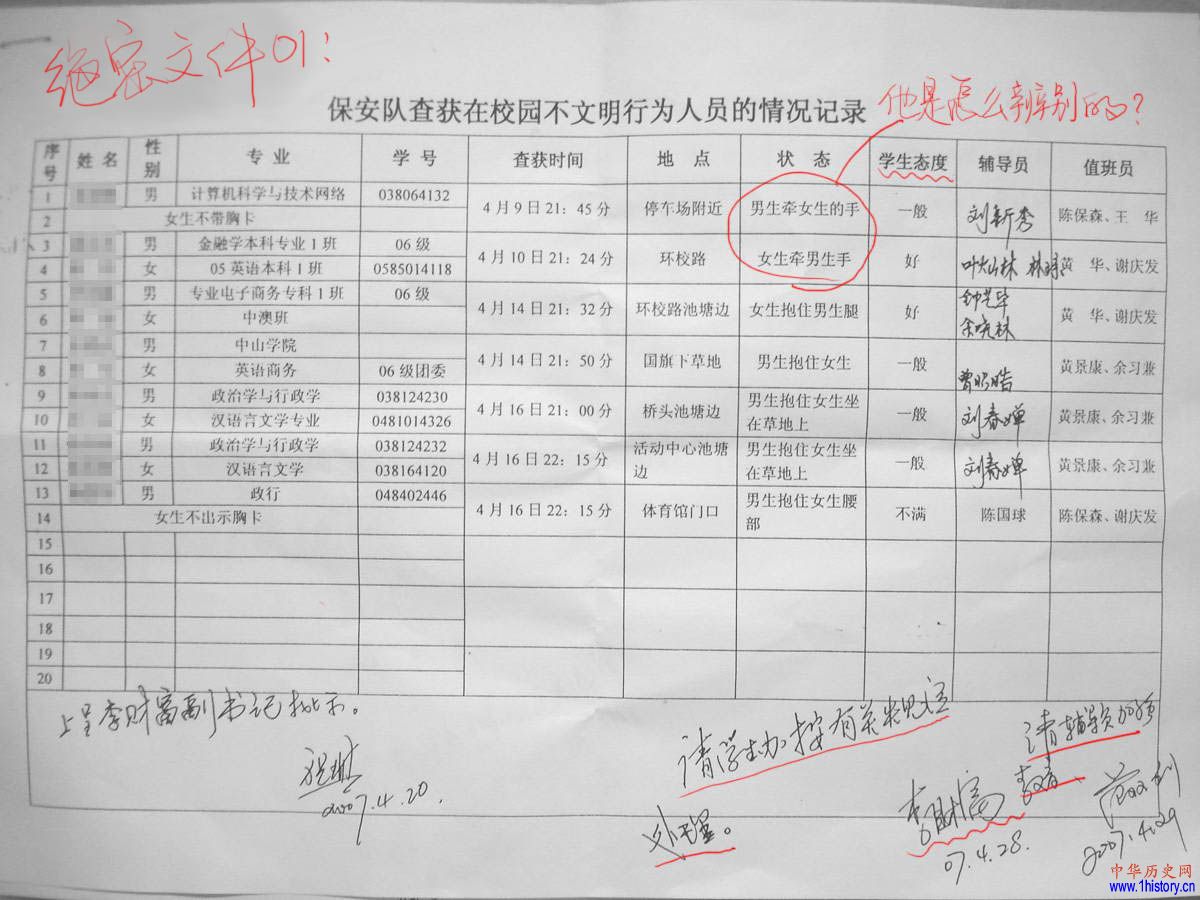 绝密文件01：
保安队查获在校园不文明行为人员的情况记录
他是怎么辨别的？
序号 姓名 性别 专业 学号 查获时间 地点 状态 学生态度 辅导员 值班员
1 男 计算机科学与技术网络 038064132
2 女生不带胸卡
4月9日21：45分 停车场附近 男生牵女生的手 一般 刘新秀 陈保森、王 华
3 男 金融学本科专业1班 06级
4 女 05英语本科1班 0585014118
4月10日21：24分 环校路 女生牵男生手 好 叶灿林 黄 华、谢庆发
5 男 专业电子商务专科1班 06级
6 女 中澳班
4月14日21：32分 环校路池塘边 女生抱住男生腿 好 黄 华、谢庆发
7 男 中山学院
8 女 英语商务 06级团委
4月14日21：50分 国旗下草地 男生抱住女生 一般 黄景康、余习兼
9 男 政治学与行政学 038124230
10 女 汉语言文学专业 0481014326
4月16日21：00分 桥头池塘边 男生抱住女生坐在草地上 一般 刘春婵 黄景康、余习兼
11 男 政治学与行政学 038124232
12 女 汉语言文学 038164120
4月16日22：15分 活动中心池塘边 男生抱住女生坐在草地上 一般 刘春婵 黄景康、余习兼
13 男 政行 048402446
14 女生不出示胸卡
4月16日22：15分 体育馆门口 男生抱住女生腰部 不满 陈国球 陈保森、谢庆发
15
16
17
18
19
20
上呈李财富副书记批示。
2007.4.20.
请学生办按有关规定
处理。
李财富
07.4.28.
请辅导员加强
教育
2007.4.29
中华历史网
www.1history.cn